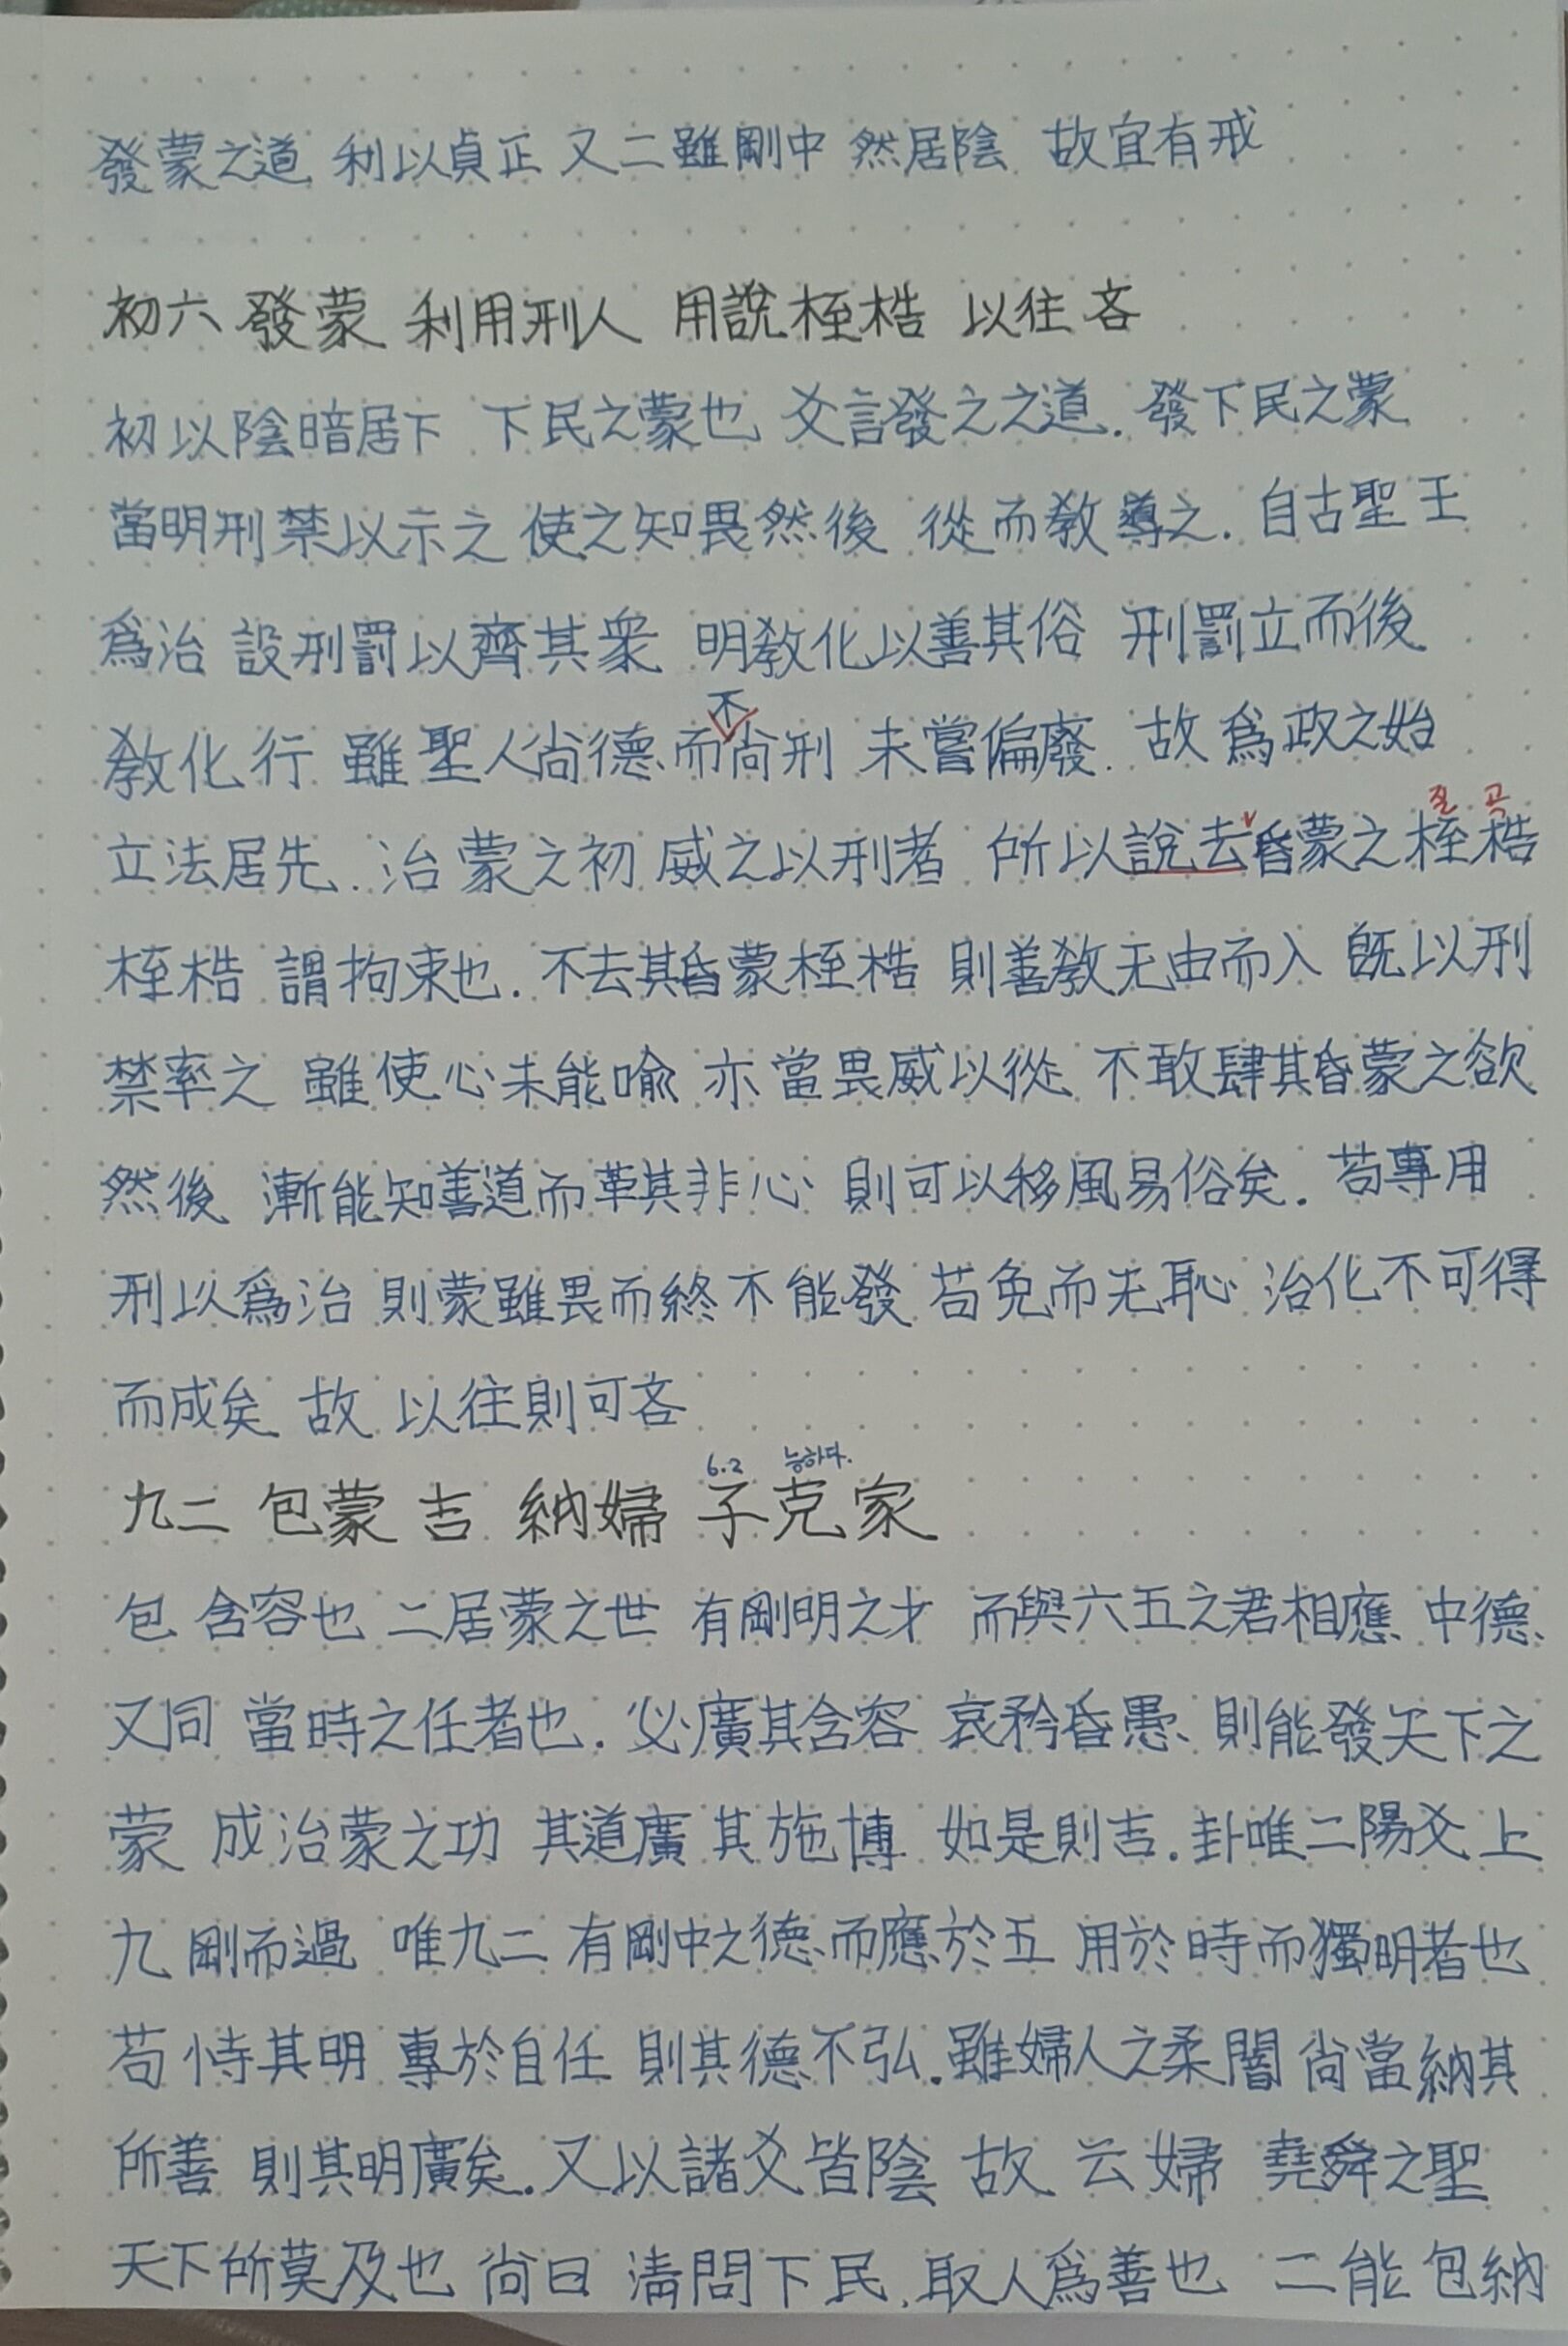 發蒙之道 利以貞正 又二雖剛中 然居陰 故宜有戒
初六 發蒙 利用刑人 用說桎梏 以往吝
初以陰暗居下 下民之蒙也 爻言發之之道. 發下民之蒙
當明刑禁以示之 使之知畏然後 從而敎導之. 自古聖王
爲治 設刑罰以齊其衆 明敎化以善其俗 刑罰立而後
不
敎化行 雖聖人尙德而尙刑 未嘗偏廢. 故爲政之始
질 곡
立法居先. 治蒙之初 威之以刑者 所以說去昏蒙之桎梏
桎梏 謂拘束也. 不去其昏蒙桎梏 則善敎无由而入 旣以刑
禁率之 雖使心未能喩 亦當畏威以從 不敢肆其昏蒙之欲
然後 漸能知善道而革其非心 則可以移風易俗矣. 苟專用
刑以爲治 則蒙雖畏而終不能發 苟免而无恥 治化不可得
而成矣 故 以往則可吝
6.2 능하다.
九二 包蒙 吉 納婦 子克家
包 含容也 二居蒙之世 有剛明之才 而與六五之君相應 中德
又同 當時之任者也. 必廣其含容 哀矜昏愚 則能發天下之
蒙 成治蒙之功 其道廣 其施博 如是則吉. 卦唯二陽爻 上
九 剛而過 唯九二 有剛中之德而應於五 用於時而獨明者也
苟恃其明 專於自任 則其德不弘. 雖婦人之柔闇 尙當納其
所善 則其明廣矣. 又以諸爻皆陰 故 云婦 堯舜之聖
天下所莫及也 尙曰 淸問下民. 取人爲善也 二能包納